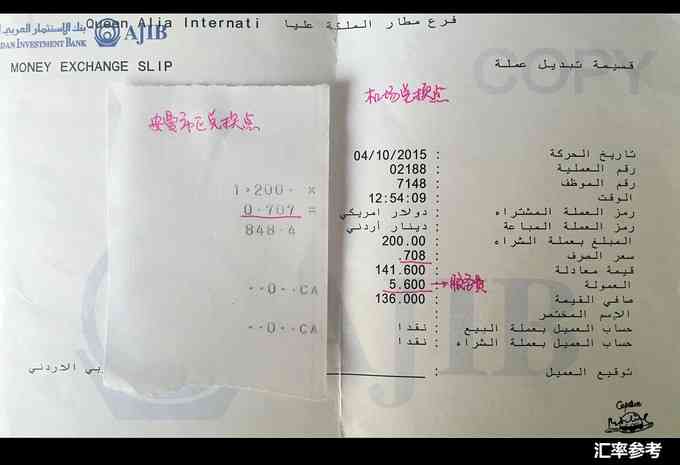 بنك الاستثمار العربي ا
Queen Alia Internati
فرع مطار الملكة عليا
DAN INVESTMENT BANK
AJIB
MONEY EXCHANGE SLIP
COPY
قسيمة تبديل عملة
机场兑换点
安曼市区兑换点
1·200· ×
0·707 =
848·4
··0··CA
··0··CA
04/10/2015 : تاريخ الحركة
02188 : رقم العملية
7148 : رقم الموظف
12:54:09 : الوقت
دولار امريكي : رمز العملة المشتراه
دينار أردني : رمز العملة المباعة
200.00 : المبلغ بعملة الشراء
.708 : سعر الصرف
141.600 : قيمة معادلة
5.600 : العمولة
→服务费
136.000 : صافي القيمة
: الاسم المختصر
نقدا : حساب العميل بعملة البيع
نقدا : حساب العميل بعملة الشراء
توقيع العميل :
بي الاردني
AJIB
Capten
汇率参考